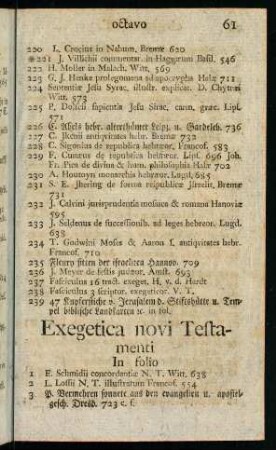 octavo 61
220 L. Crocius in Nahum, Bremæ 620
*221 J. Villichii commentar. in Haggæum Basil. 546
222 H. Moller in Malach. Wit. 569
223 G. J. Henke prolegomena ad apocrypha Halæ 711
224 Sententiæ Jesu Syrac, illustr. explicat. D. Chytræi
Wit. 573
225 P. Dolscii sapientia Jesu Sirac, carm. græc. Lipf.
571
226 C. Ahels hebr. alterthümer Leipz. u. Gardeleb. 736
227 C. Ikenii antiquitates hebr. Bremæ 732
228 C. Sigonius de republica hebræor. Francof. 583
229 P. Cunæus de republica hebræor. Lipf. 696 Joh.
Fr. Pici de divina & hum. philosophia Halæ 702
230 A. Houtoyn monarchia hebræor. Lugd. 685
231 S. E. Jhering de forma reipublicæ Jsraelit. Bremæ
731
232 J. Calvini jurisprudentia mosaica & romana Hanoviæ
595
233 J. Seldenus de successionib. ad leges hebræor. Lugd.
638
234 T. Godwini Moses & Aaron f. antiquitates hebr.
Francof. 710
235 Fleury sitten der israeliten Hannov. 709
236 J. Meyer de festis judæor. Amst. 693
237 Fasciculus 16 tract. exeget. H. v. d. Hardt
238 Fasciculus 3 scriptor. exegeticor. V. T.
239 47 Kupferstiche v. Jerusalem d. Stiftshütte u. Tem-
pel biblische Landkarten ec. in fol.
Exegetica novi Testa-
menti
In folio
1 E. Schmidii concordantiæ N. T. Wit. 638
2 L. Lossii N. T. illustratum Francof. 554
3 P. Vermehren sonnete aus den evangelien u. apostel-
gesch. Dresd. 723 c. f.